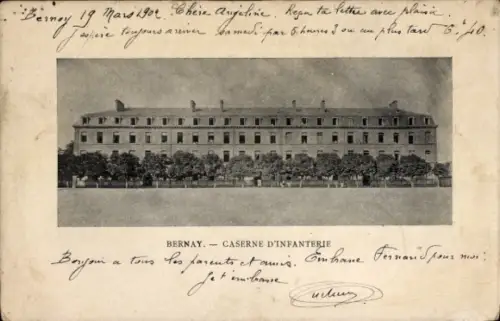 Bernay 19 Mars 1902 Chère Angéline Reçu ta lettre avec plaisir
J'espère toujours arriver Samedi par 5 heures 2 ou au plus tard 6. 40
BERNAY. — CASERNE D'INFANTERIE
Bonjour a tous les parents et amis. Embrasse Fernand pour moi.
Je t'embrasse